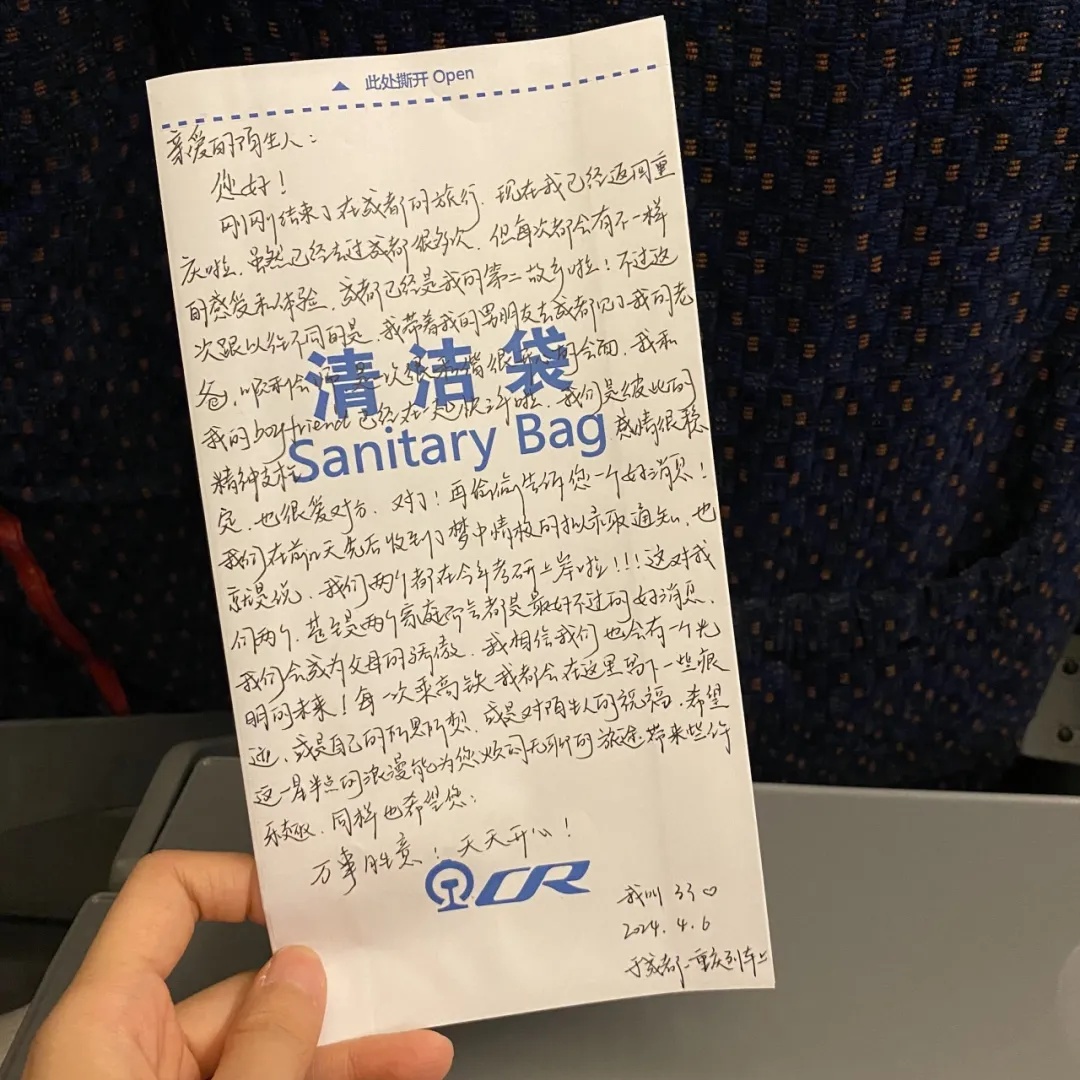 此处撕开 Open
亲爱的陌生人:
您好!
刚刚结束了在成都的旅行,现在我已经返回重
庆啦,虽然已经去过成都很多次,但每次都会有不一样
的感受和体验,成都已经是我的第二故乡啦!不过这
次跟以往不同的是,我带着我的男朋友去成都见了我的老
爸,顺利会面,是一次很和谐很的会面,我和
清洁袋
我的boyfriend已经在一起快三年啦,我们是彼此的
Sanitary Bag
精神支柱,感情很稳
定,也很爱对方,对了!再偷偷告诉您一个好消息!
我们在前几天先后收到了梦中情校的拟录取通知,也
就是说,我们两个都在今年考研上岸啦!!!这对我
们两个,甚至是两个家庭而言都是最好不过的好消息,
我们会成为父母的骄傲,我相信我们也会有一个光
明的未来!每一次乘高铁我都会在这里写下一些痕
迹,或是自己的所思所想,或是对陌生人的祝福,希望
这一星半点的浪漫能为您烦闷无聊的旅途带来些许
乐趣,同样也希望您:
万事胜意!天天开心!
CR
我叫 33♡
2024.4.6
于成都-重庆列车上